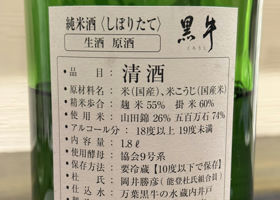 純米酒〈しぼりたて〉
生酒 原酒
黒牛
くろうし
品目:清酒
原材料名:米(国産)、米こうじ(国産米)
精米歩合:麹米55% 掛米60%
使用米:山田錦26% 五百万石74%
アルコール分:18度以上 19度未満
内容量:1.8ℓ
使用酵母:協会9号系
保存方法:要冷蔵【10度以下で保存】
杜氏:岡井勝彦(能登杜氏組合員)
仕込水:万葉黒牛の水蔵内井戸